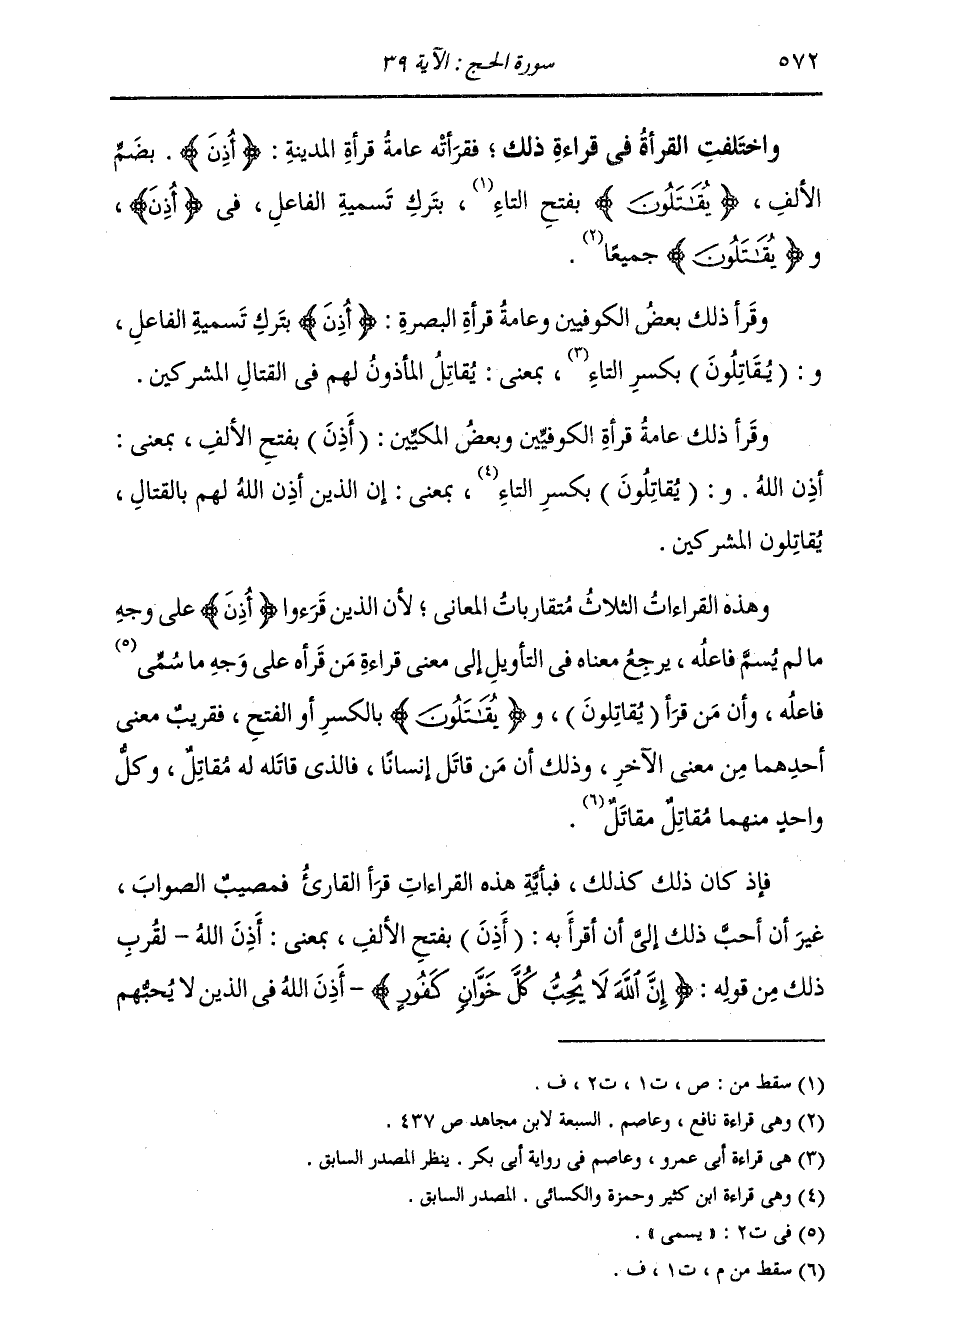 ٥٧٢
سورة الحج : الآية ٣٩
واختَلفتِ القرأةُ فى قراءةِ ذلك ؛ فقرَأتْه عامةُ قرأةِ المدينةِ : ﴿ أُذِنَ ﴾ . بضَمِّ
الألفِ ، ﴿ يُقَٰتَلُونَ ﴾ بفتحِ التاءِ(١) ، بتَركِ تَسميةِ الفاعلِ ، فى ﴿ أُذِنَ ﴾ ،
و ﴿ يُقَٰتَلُونَ ﴾ جميعًا(٢) .
وقَرأ ذلك بعضُ الكوفيين وعامةُ قرأةِ البصرةِ : ﴿ أُذِنَ ﴾ بتَركِ تَسميةِ الفاعلِ ،
و : ( يُقَاتِلُونَ ) بكسرِ التاءِ(٣) ، بمعنى : يُقاتِلُ المأذونُ لهم فى القتالِ المشركين .
وقَرأ ذلك عامةُ قرأةِ الكوفيِّين وبعضُ المكيِّين : ( أَذِنَ ) بفتحِ الألفِ ، بمعنى :
أذِن اللهُ . و : ( يُقاتِلُونَ ) بكسرِ التاءِ(٤) ، بمعنى : إن الذين أذِن اللهُ لهم بالقتالِ ،
يُقاتِلون المشركين .
وهذه القراءاتُ الثلاثُ مُتقارباتُ المعانى ؛ لأن الذين قَرَءوا ﴿ أُذِنَ ﴾ على وجهِ
ما لم يُسمَّ فاعلُه ، يرجِعُ معناه فى التأويلِ إلى معنى قراءةِ مَن قَرأه على وَجهِ ما سُمِّى(٥)
فاعلُه ، وأن مَن قرَأ ( يُقاتِلونَ ) ، و ﴿ يُقَٰتَلُونَ ﴾ بالكسرِ أو الفتحِ ، فقريبٌ معنى
أحدِهما مِن معنى الآخرِ ، وذلك أن مَن قاتَل إنسانًا ، فالذى قاتَله له مُقاتِلٌ ، وكلُّ
واحدٍ منهما مُقاتِلٌ مقاتَلٌ(٦) .
فإذ كان ذلك كذلك ، فبأيَّةِ هذه القراءاتِ قرَأ القارئُ فمصيبٌ الصوابَ ،
غيرَ أن أحبَّ ذلك إلىَّ أن أقرأَ به : ( أَذِنَ ) بفتحِ الألفِ ، بمعنى : أَذِنَ اللهُ – لقُربِ
ذلك مِن قولِه : ﴿ إِنَّ ٱللَّهَ لَا يُحِبُّ كُلَّ خَوَّانٍ كَفُورٍ ﴾ – أَذِنَ اللهُ فى الذين لا يُحبُّهم
(١) سقط من : ص ، ت١ ، ت٢ ، ف .
(٢) وهى قراءة نافع ، وعاصم . السبعة لابن مجاهد ص ٤٣٧ .
(٣) هى قراءة أبى عمرو ، وعاصم فى رواية أبى بكر . ينظر المصدر السابق .
(٤) وهى قراءة ابن كثير وحمزة والكسائى . المصدر السابق .
(٥) فى ت٢ : « يسمى » .
(٦) سقط من م ، ت١ ، ف .